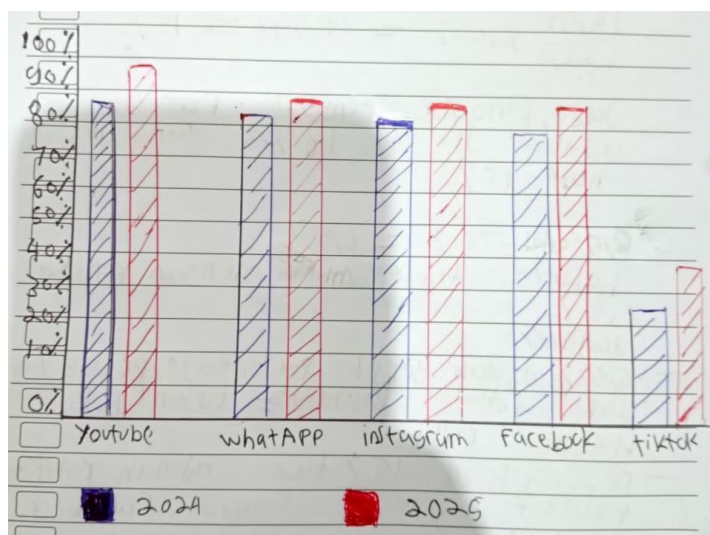 100%
90%
80%
70%
60%
50%
40%
30%
20%
10%
0%
Youtube whatAPP instagram Facebook tiktok
2024 2025